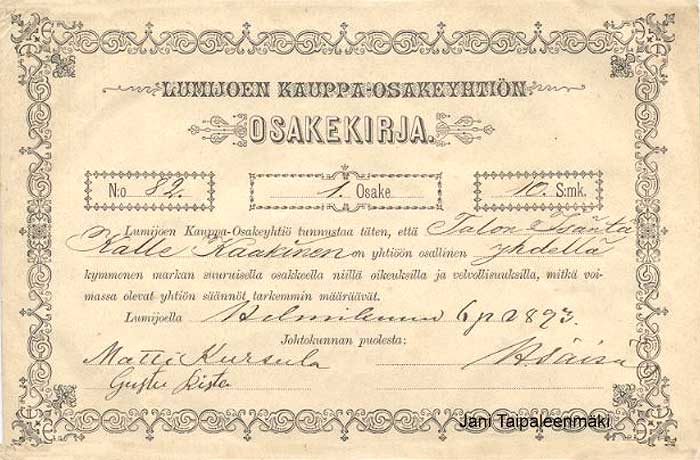 LUMIJOEN KAUPPA-OSAKEYHTIÖN
OSAKEKIRJA.
N:o 82. 1. Osake 10. S:mk.
Lumijoen Kauppa-Osakeyhtiö tunnustaa täten, että Talon Isäntä
Kalle Kaakinen on yhtiöön osallinen yhdellä
kymmenen markan suuruisella osakkeella niillä oikeuksilla ja velvollisuuksilla, mitkä voi-
massa olevat yhtiön säännöt tarkemmin määräävät.
Lumijoella Helmikuun 6 p 1893.
Johtokunnan puolesta:
Matti Kursula
Gustu
Jani Taipaleenmäki